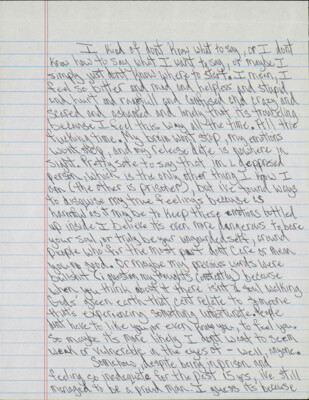 I kind of don't know what to say, or I don't
know how to say what I want to say, or maybe I
simply just don't know where to start. I mean, I
feel so bitter and mad and helpless and stupid
and hurt and and confused and crazy and
scared and ashamed and lonely that it's troubling
because I feel this way all the time. All the
fuckin time. My brain won't stop, my emotions
won't stop and my release date is nowhere in
sight. Pretty safe to say that im a depressed
person, which is the only other thing I know I
am (the other is prisoner), but ive found ways
to disguise my true feelings because as
as it may be to keep these emotions bottled
up inside I believe its even more dangerous to bare
your soul, or truly be your unguarded self, around
people who for the most part don't care or mean
you no good. Or maybe my previous words were
(I question my thoughts constantly) because
when you think about it there isn't a soul walking
Gods' green earth that cant relate to someone
that's experiencing something unfortunate. People
dont have to like you, or even know you, to feel you.
So maybe its more likely I dont want to seem
weak or vulnerable in the eyes of - well, anyone.
Somehow, despite being in prison and
feeling so inadequate for the past 15 yrs, I've still
managed to be a proud man. I guess its because